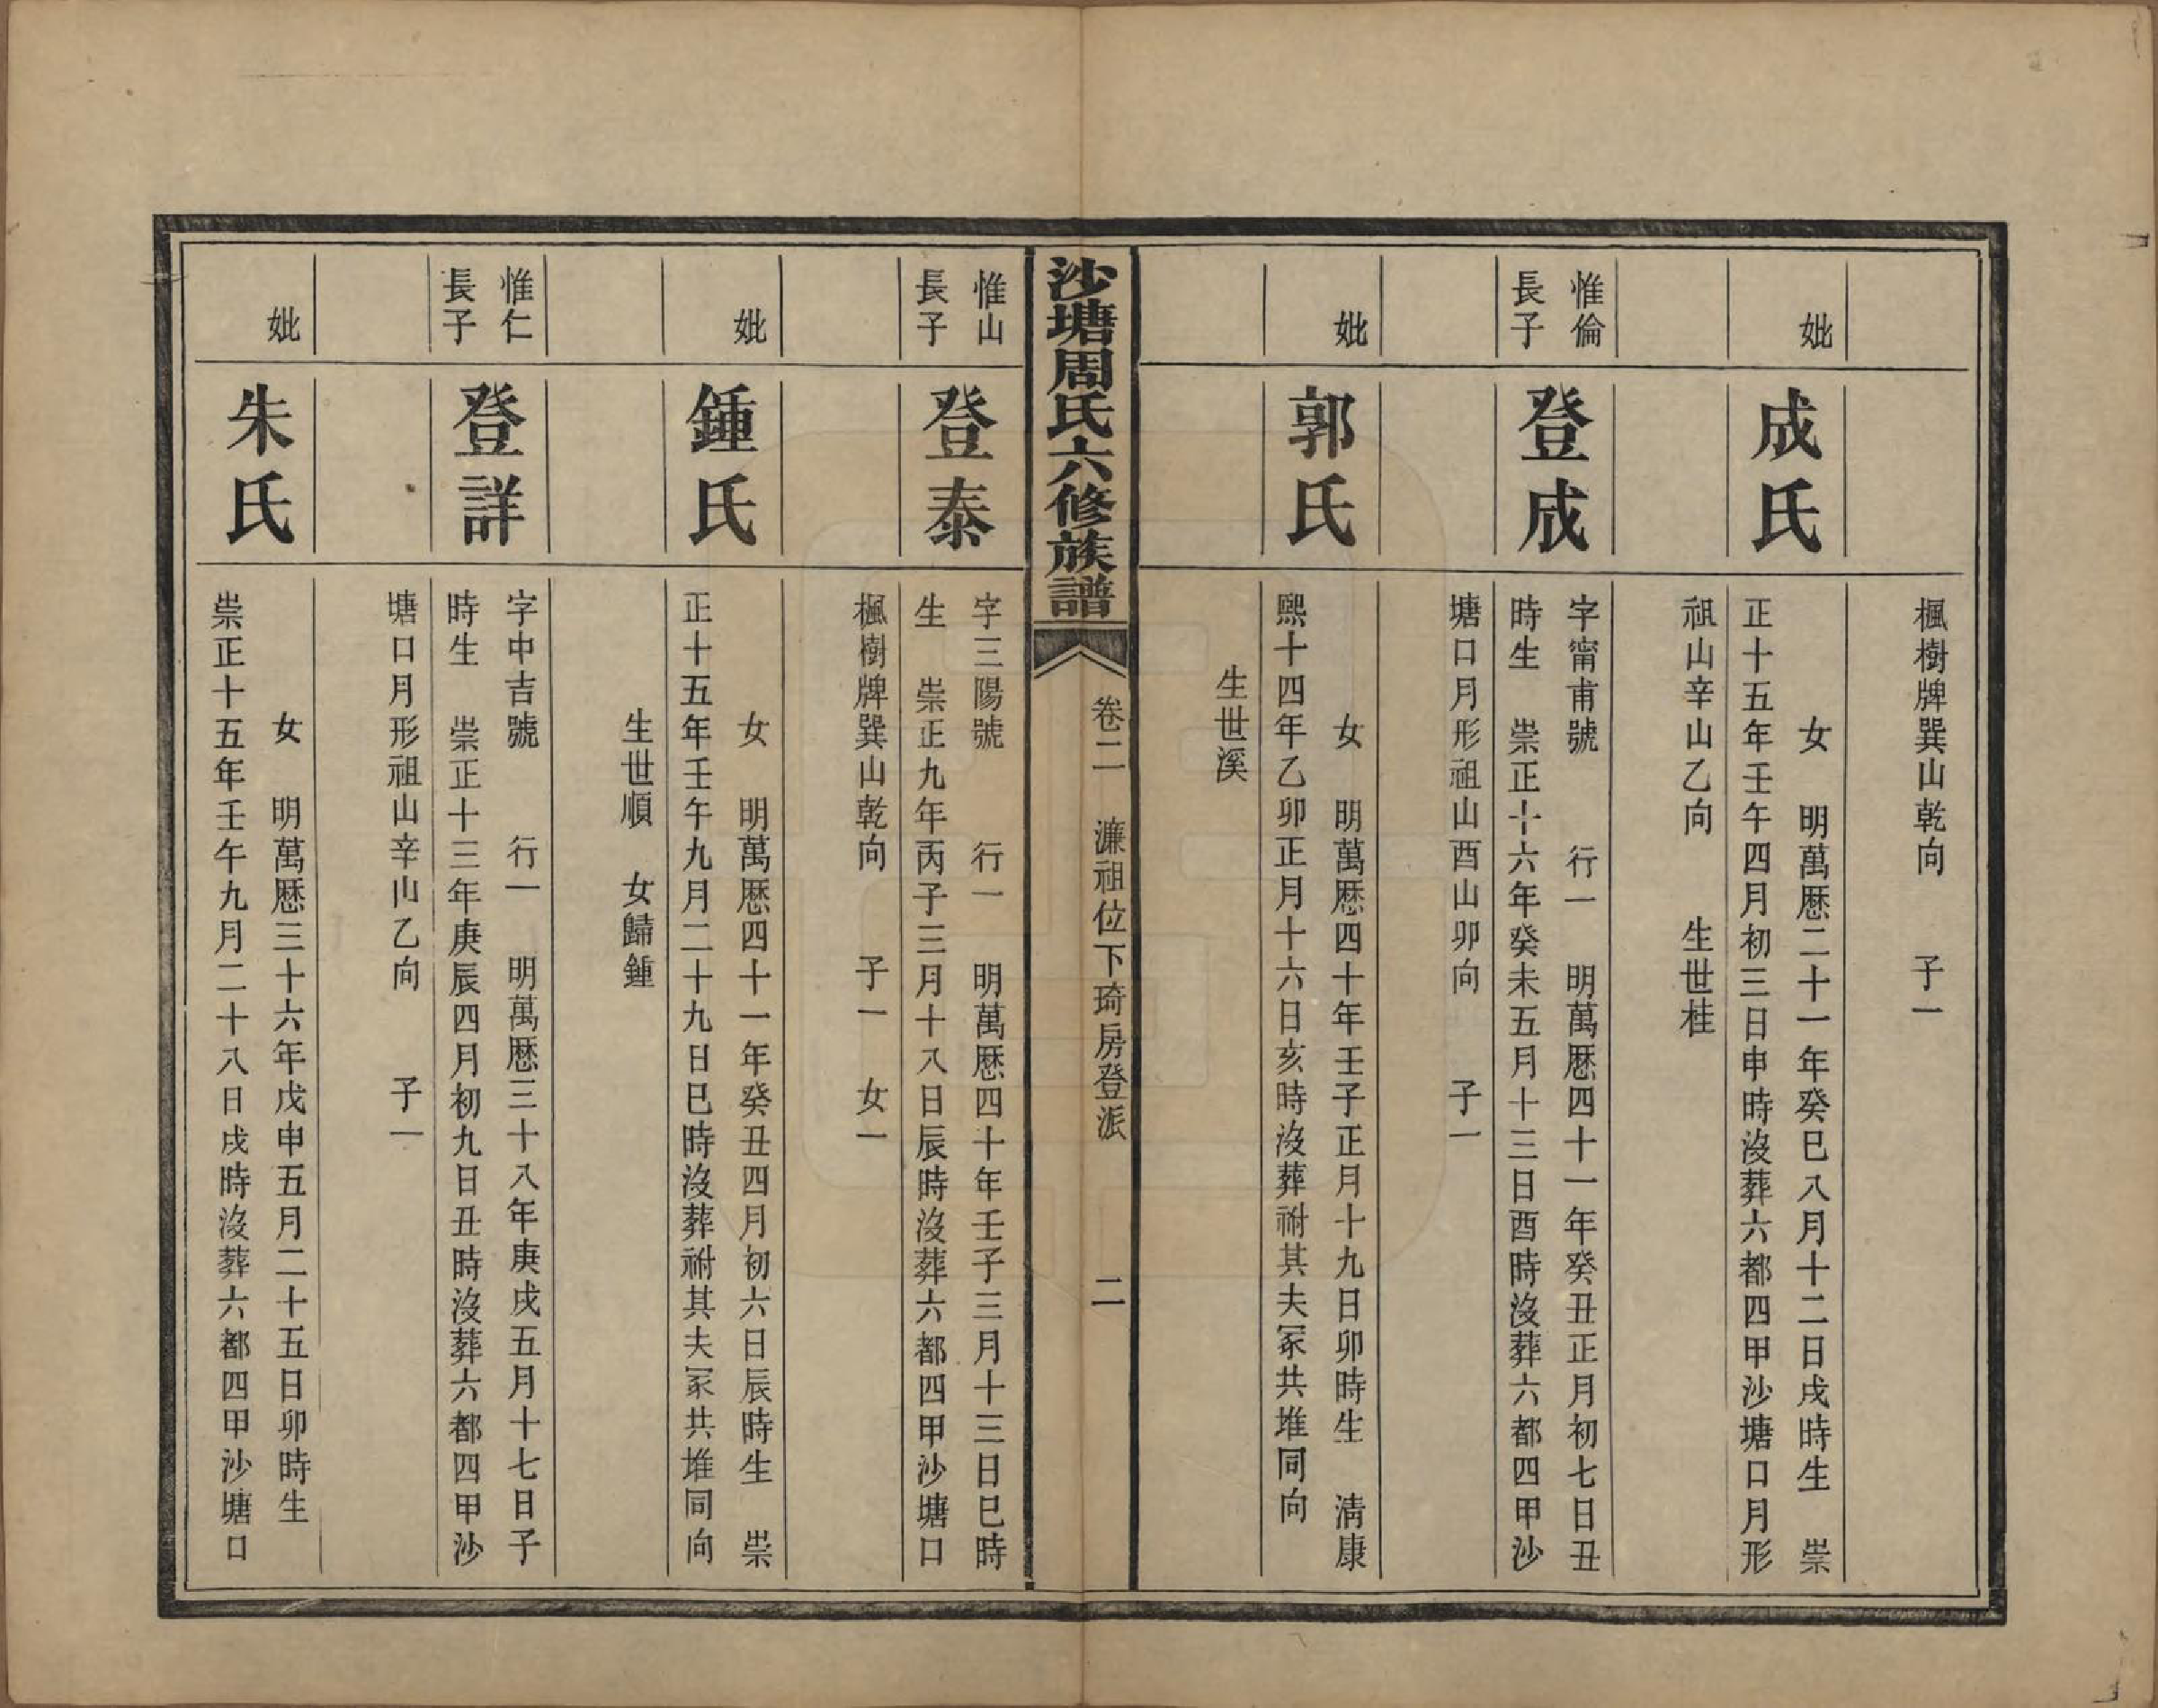 楓樹牌巽山乾向　　子一
妣
成氏
女　明萬厯二十一年癸巳八月十二日戌時生　崇
正十五年壬午四月初三日申時沒葬六都四甲沙塘口月形
祖山辛山乙向　　生世桂
惟倫
長子
登成
字甯甫號　　行一　明萬厯四十一年癸丑正月初七日丑
時生　崇正十六年癸未五月十三日酉時沒葬六都四甲沙
塘口月形祖山酉山卯向　　子一
妣
郭氏
女　明萬厯四十年壬子正月十九日卯時生　清康
熙十四年乙卯正月十六日亥時沒葬祔其夫冢共堆同向
生世溪
沙塘周氏六修族譜
卷二　濂祖位下琦房登派　　二
惟山
長子
登泰
字三陽號　　行一　明萬厯四十年壬子三月十三日巳時
生　崇正九年丙子三月十八日辰時沒葬六都四甲沙塘口
楓樹牌巽山乾向　　子一　女一
妣
鍾氏
女　明萬厯四十一年癸丑四月初六日辰時生　崇
正十五年壬午九月二十九日巳時沒葬祔其夫冢共堆同向
生世順　女歸鍾
惟仁
長子
登詳
字中吉號　　行一　明萬厯三十八年庚戌五月十七日子
時生　崇正十三年庚辰四月初九日丑時沒葬六都四甲沙
塘口月形祖山辛山乙向　　子一
妣
朱氏
女　明萬厯三十六年戊申五月二十五日卯時生
崇正十五年壬午九月二十八日戌時沒葬六都四甲沙塘口